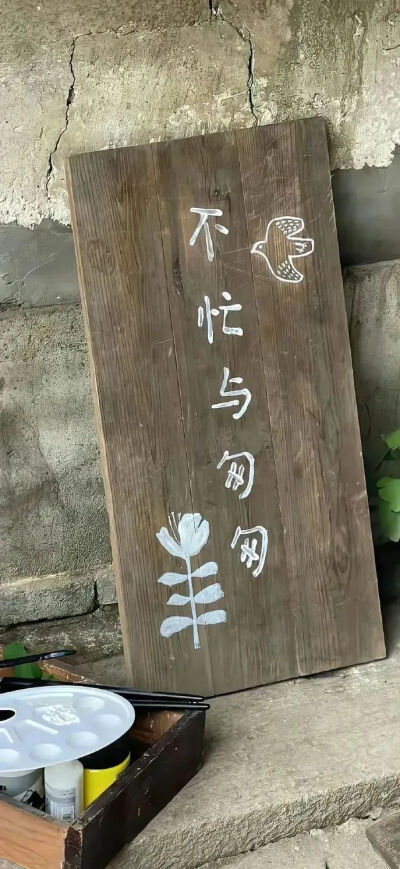 不忙与匆匆